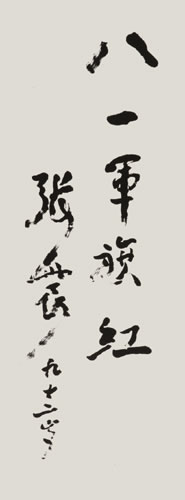 八一軍旗紅
張愛萍 九十二岁